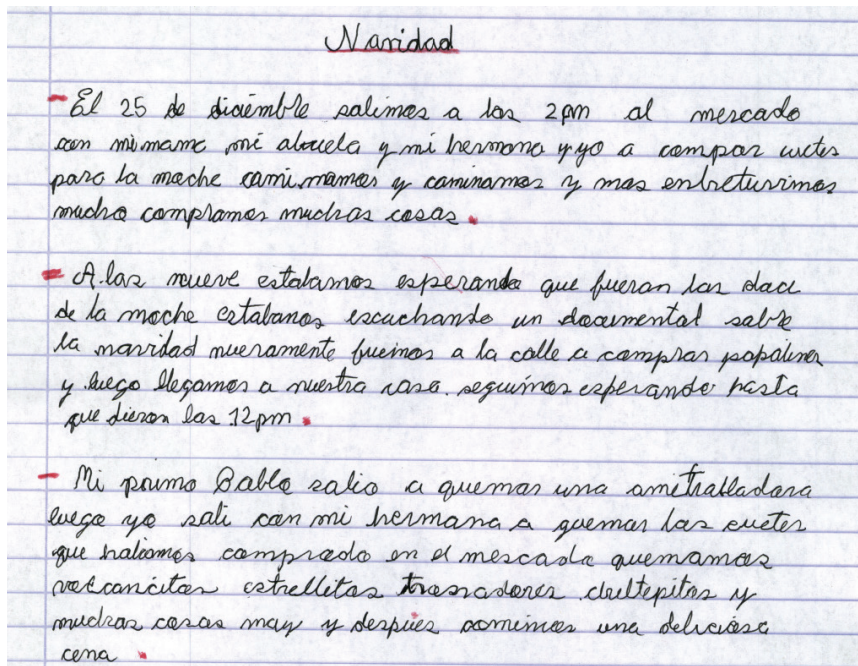 Navidad
- El 25 de diciembre salimos a las 2pm al mescado
con mi mama mi abuela y mi hermana y yo a compar cuetes
para la noche caminamos y caminamos y mas entretuvimos
mucho compramos muchas cosas.
- A las nueve estabamos esperando que fueran las doce
de la noche estabanos escuchando un documental sobre
la navidad nuevamente fueimos a la calle a comprar poporinas
y luego llegamos a nuestra casa. seguimos esperando hasta
que dieron las 12pm.
- Mi primo Pablo salio a quemar una ametralladora
luego yo sali con mi hermana a quemar los cuetes
que habiamos comprado en el mescado quemamos
volcancitos estrellitas
muchas cosas may y despues comimos una deliciosa
cena.